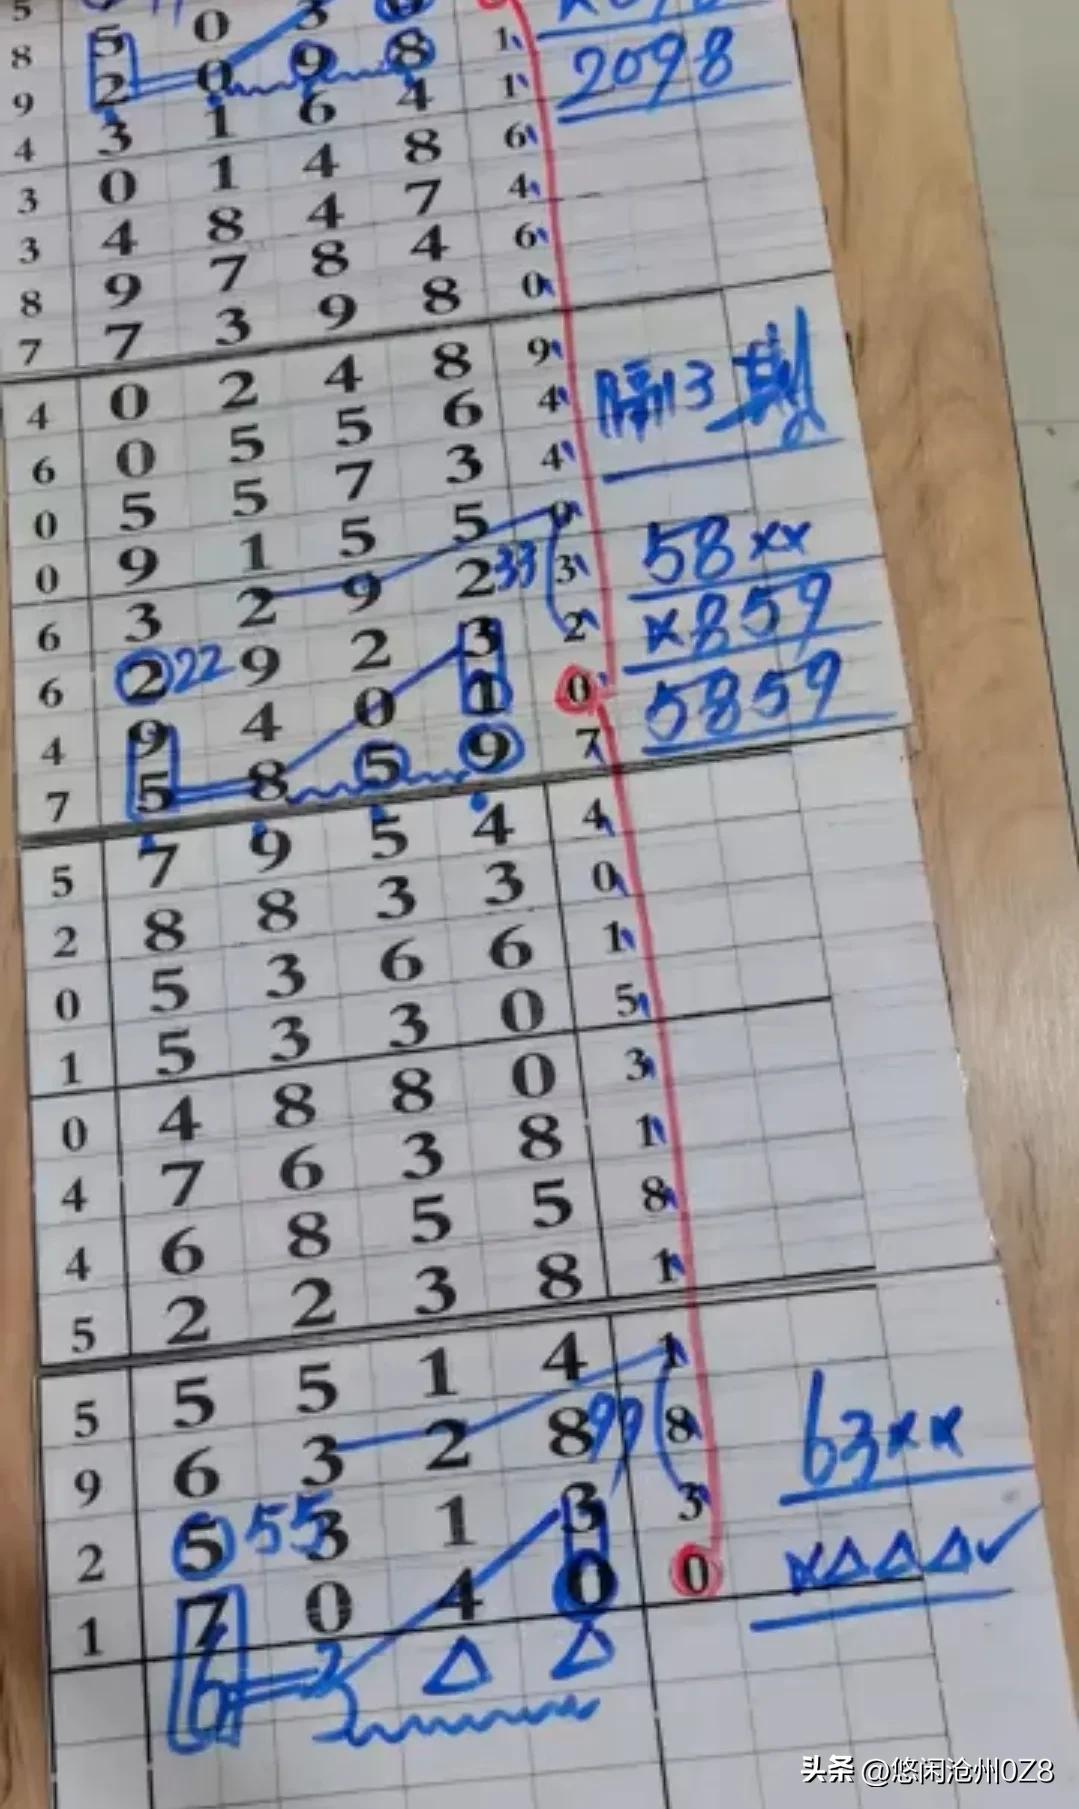 5 0 3
8 2 0 9 8 1
2098
9 3 1 6 4 1
4 0 1 4 8 6
3 4 8 4 7 4
3 9 7 8 4 6
8 7 3 9 8 0
7
4 0 2 4 8 9
隔13期
6 0 5 5 6 4
0 5 5 7 3 4
0 9 1 5 5 9
58××
6 3 2 9 2 33 3
×859
6 2 22 9 2 3 2
5859
4 9 4 0 1 0
7 5 8 5 9 7
5 7 9 5 4 4
2 8 8 3 3 0
0 5 3 6 6 1
1 5 3 3 0 5
0 4 8 8 0 3
4 7 6 3 8 1
4 6 8 5 5 8
5 2 2 3 8 1
5 5 5 1 4 1
63××
9 6 3 2 8 99 8
2 5 55 3 1 3 3
×△△△✓
1 7 0 4 0 0
6 3 △ △
头条 @悠闲沧州0Z8